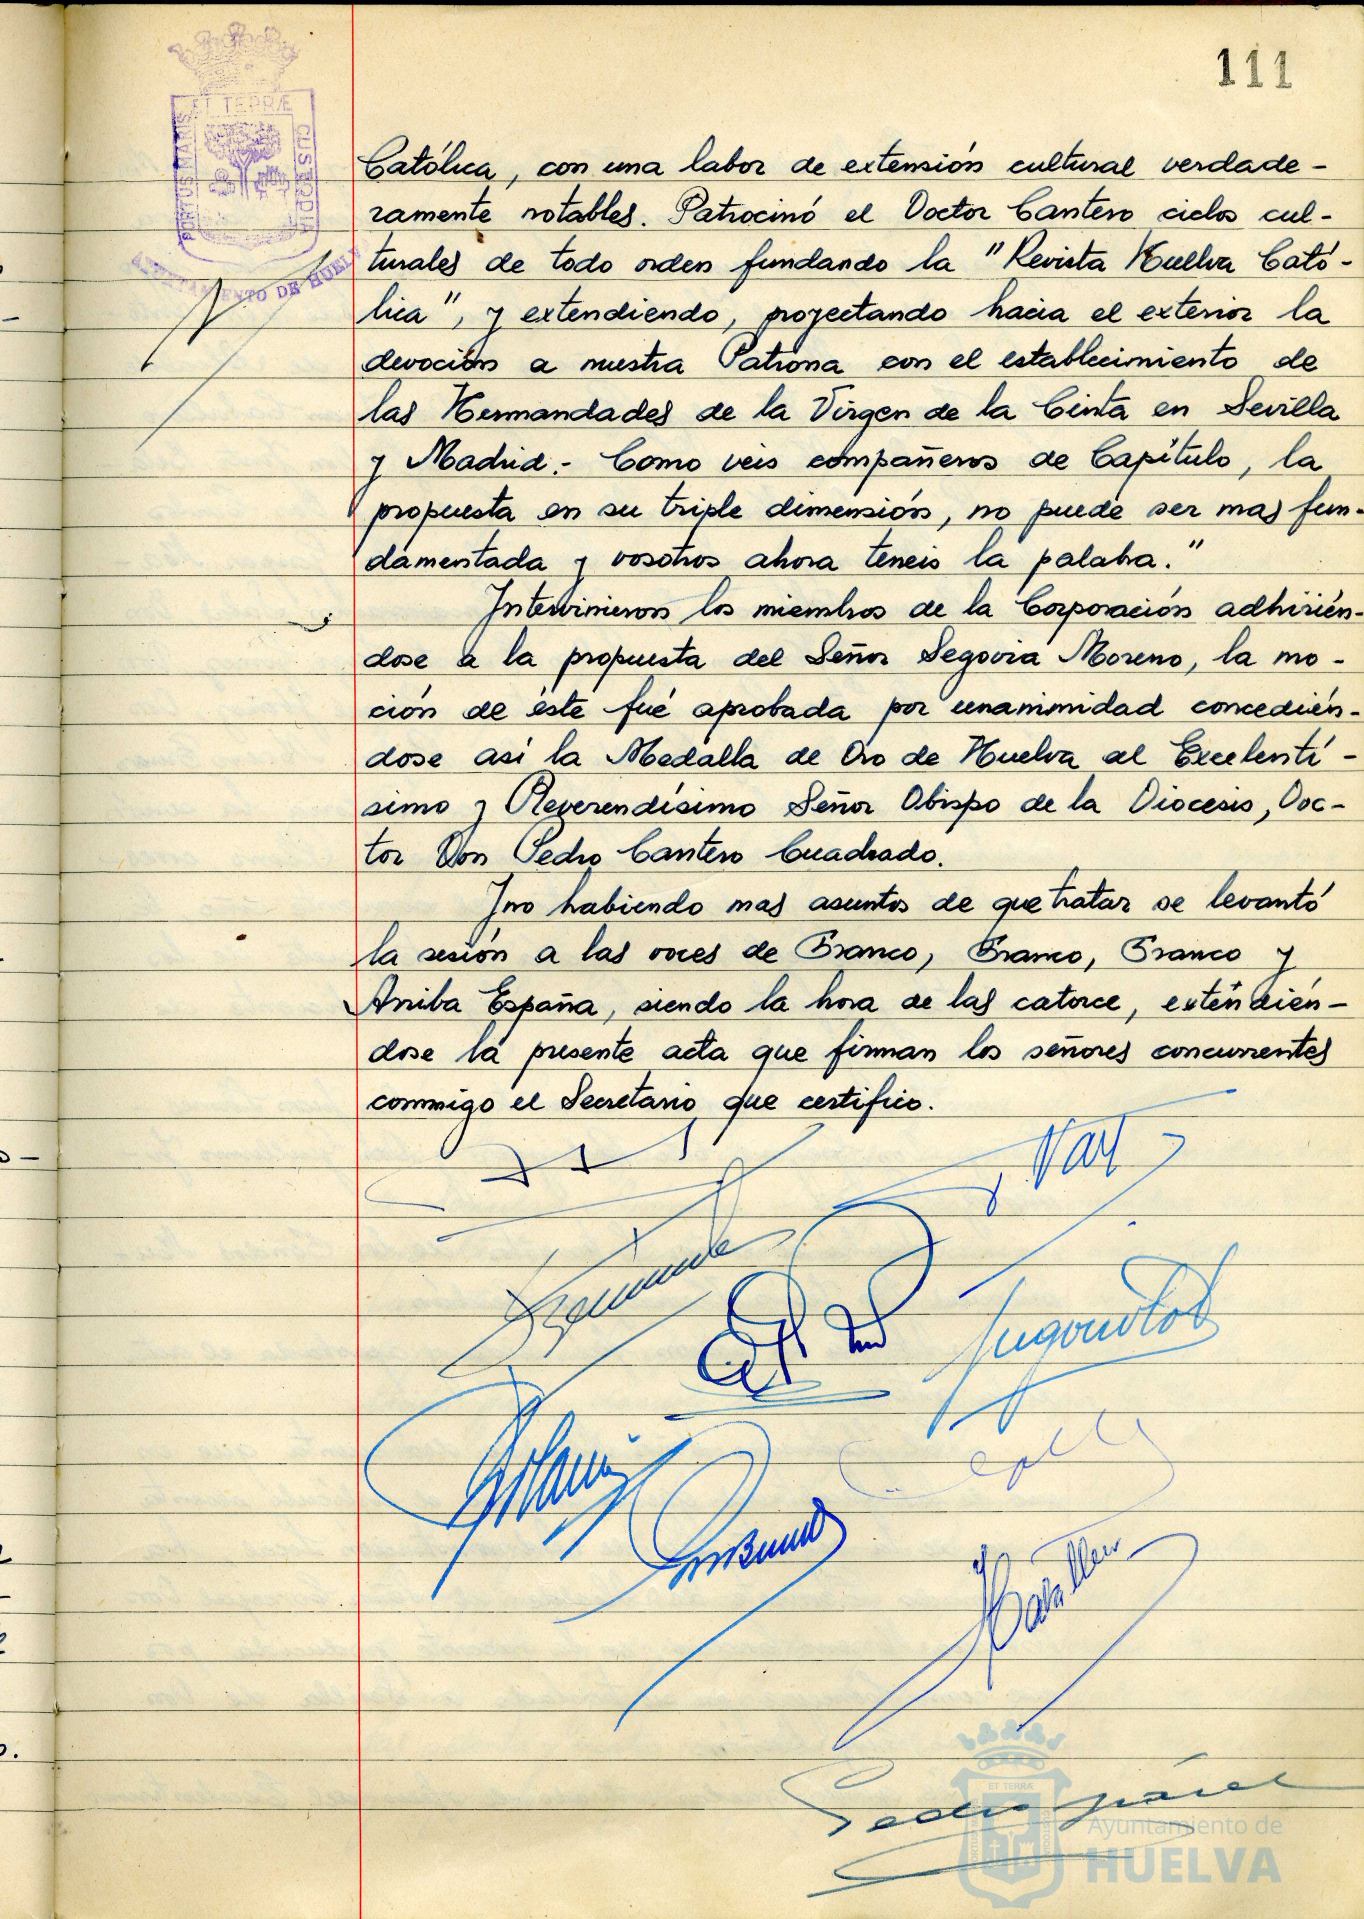 111
ET TERRÆ
PORTUS MARIS
CUSTODIA
AYUNTAMIENTO DE HUELVA
Católica, con una labor de extensión cultural verdade-
ramente notables. Patrocinó el Doctor Cantero ciclos cul-
turales de todo orden fundando la "Revista Huelva Cató-
lica", y extendiendo, proyectando hacia el exterior la
devoción a nuestra Patrona con el establecimiento de
las Hermandades de la Virgen de la Cinta en Sevilla
y Madrid.- Como veis compañeros de Capítulo, la
propuesta en su triple dimensión, no puede ser mas fun-
damentada y vosotros ahora teneis la palabra."
Intervinieron los miembros de la Corporación adhirién-
dose a la propuesta del Señor Segovia Moreno, la mo-
ción de éste fué aprobada por unanimidad concedién-
dose así la Medalla de Oro de Huelva al Excelentí-
simo y Reverendísimo Señor Obispo de la Diocesis, Doc-
tor Don Pedro Cantero Cuadrado.
Y no habiendo mas asuntos de que tratar se levantó
la sesión a las voces de Franco, Franco, Franco y
Arriba España, siendo la hora de las catorce, extendién-
dose la presente acta que firman los señores concurrentes
conmigo el Secretario que certifico.
Pedro
ET TERRÆ
Ayuntamiento de
HUELVA